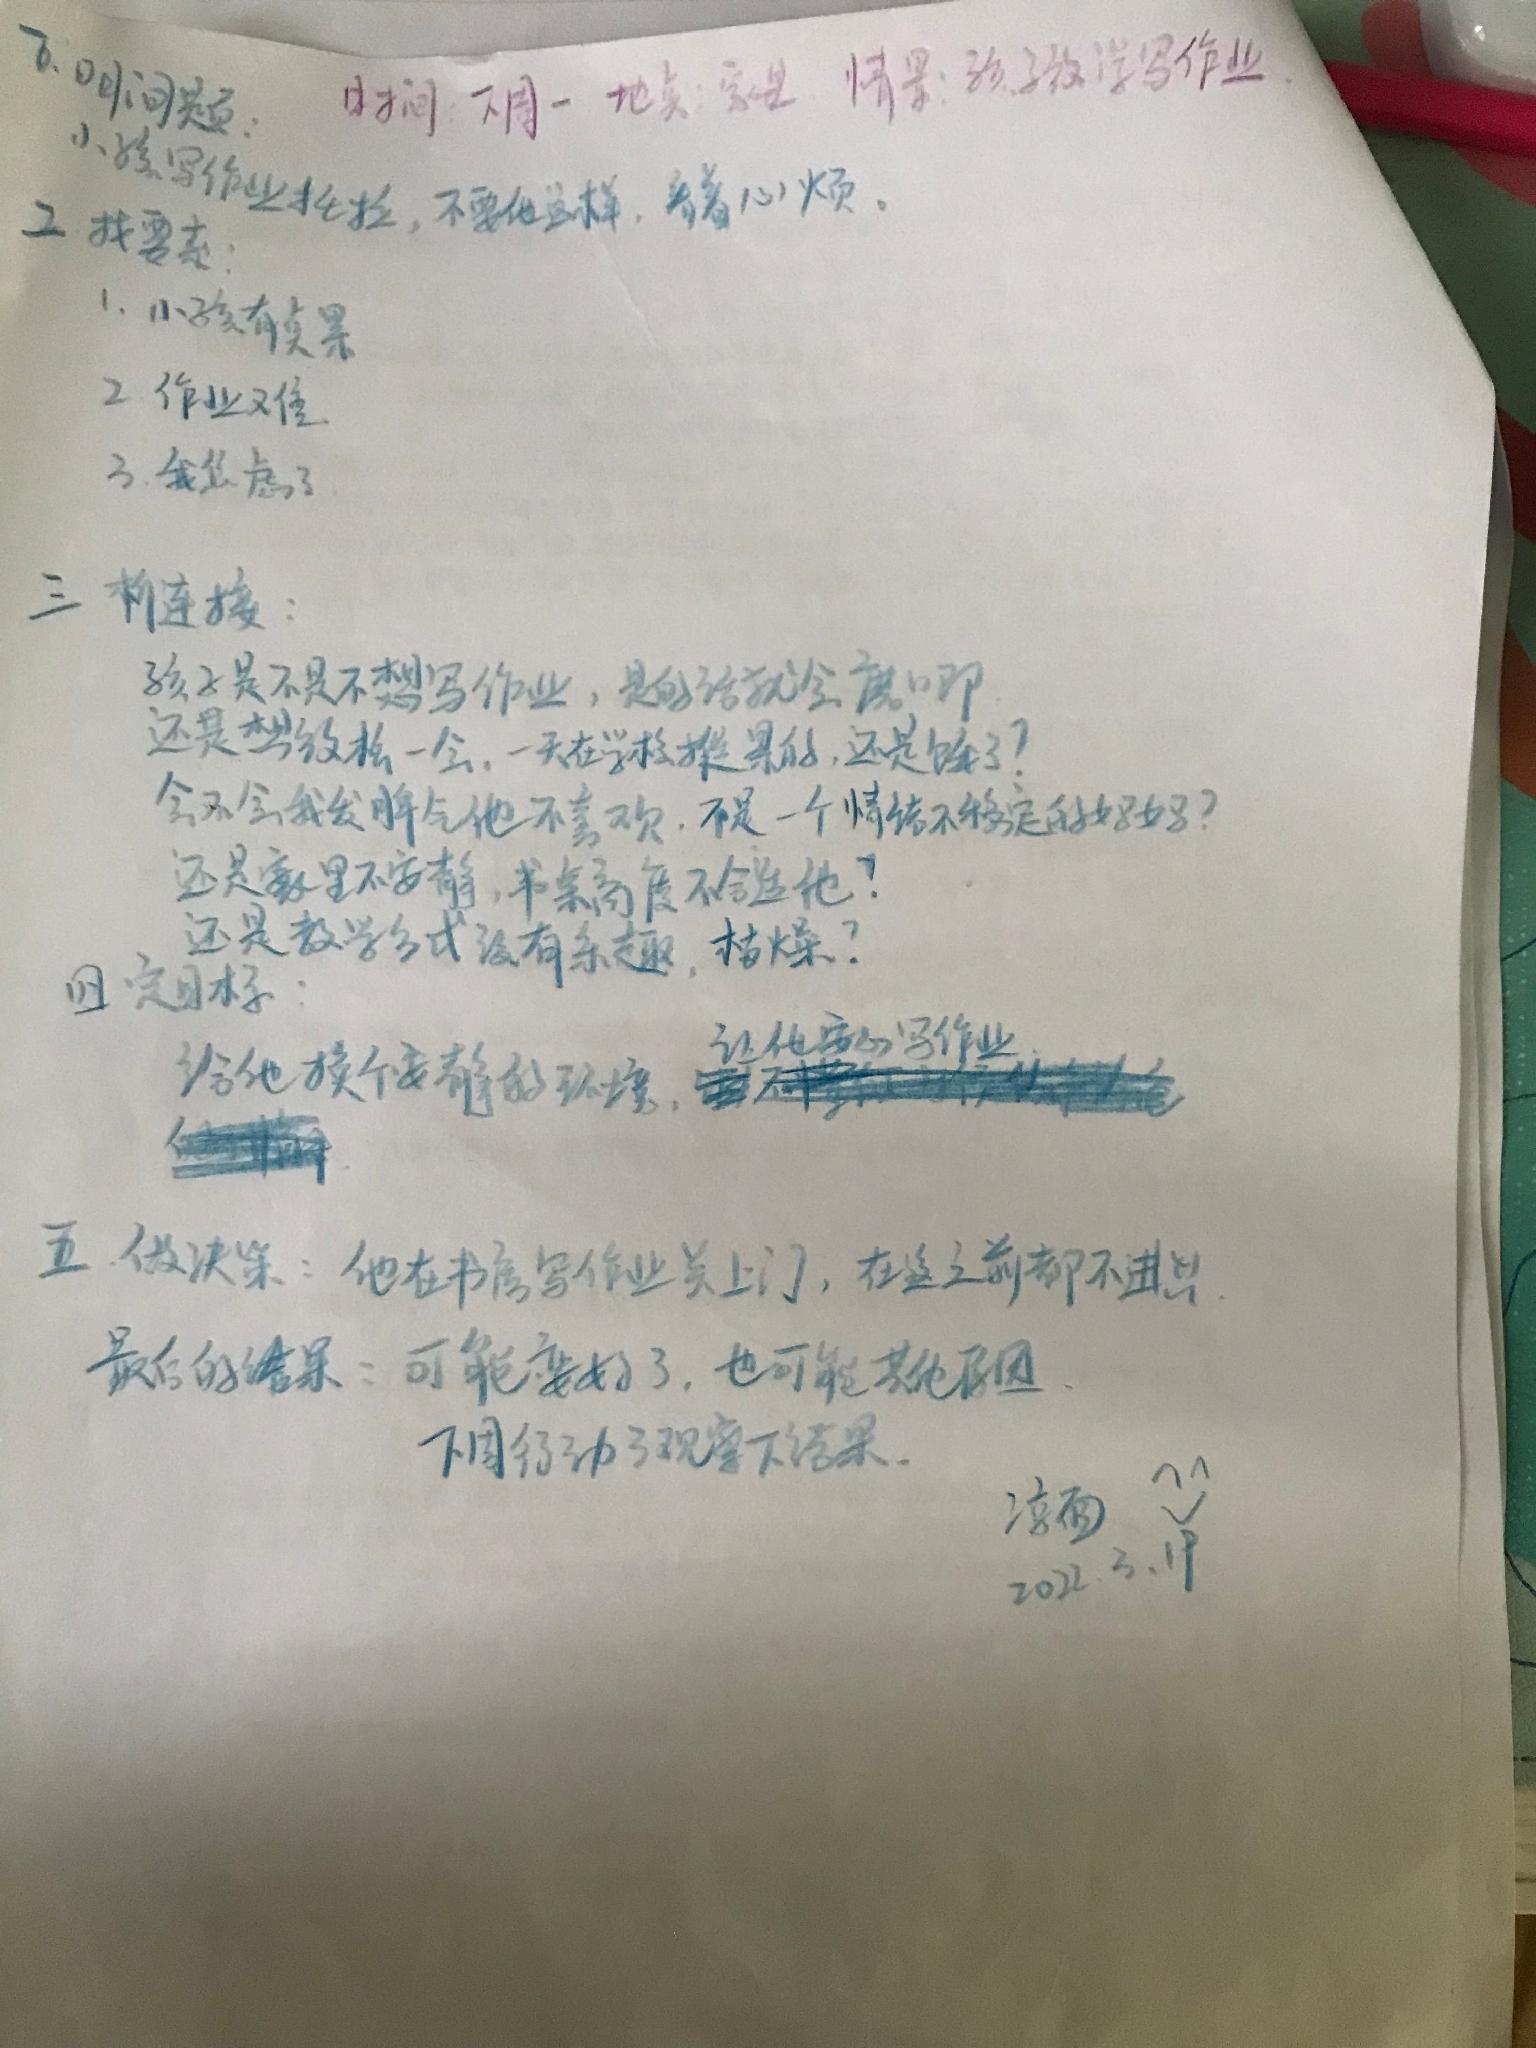 一.明问题:
时间:下周一 地点:家里 情景:孩子放学写作业.
小孩写作业拖拉,不要他这样,看着心烦。
二 找要素:
1. 小孩有点累
2. 作业又难
3. 我焦虑了.
三 析连接:
孩子是不是不想写作业,是的话就会磨叽.
还是想放松一会,一天在学校挺累的,还是饿了?
会不会我发脾气他不喜欢,不是一个情绪不稳定的好妈?
还是家里不安静,书桌高度不合适他?
还是教学方式没有乐趣,枯燥?
四 定目标:
给他换个安静的环境,让他安心写作业
五.做决策:他在书房写作业关上门,在这之前都不进去.
最后的结果:可能变好了,也可能其他原因.
下周行动了观察下结果.
凉面
2022.3.19